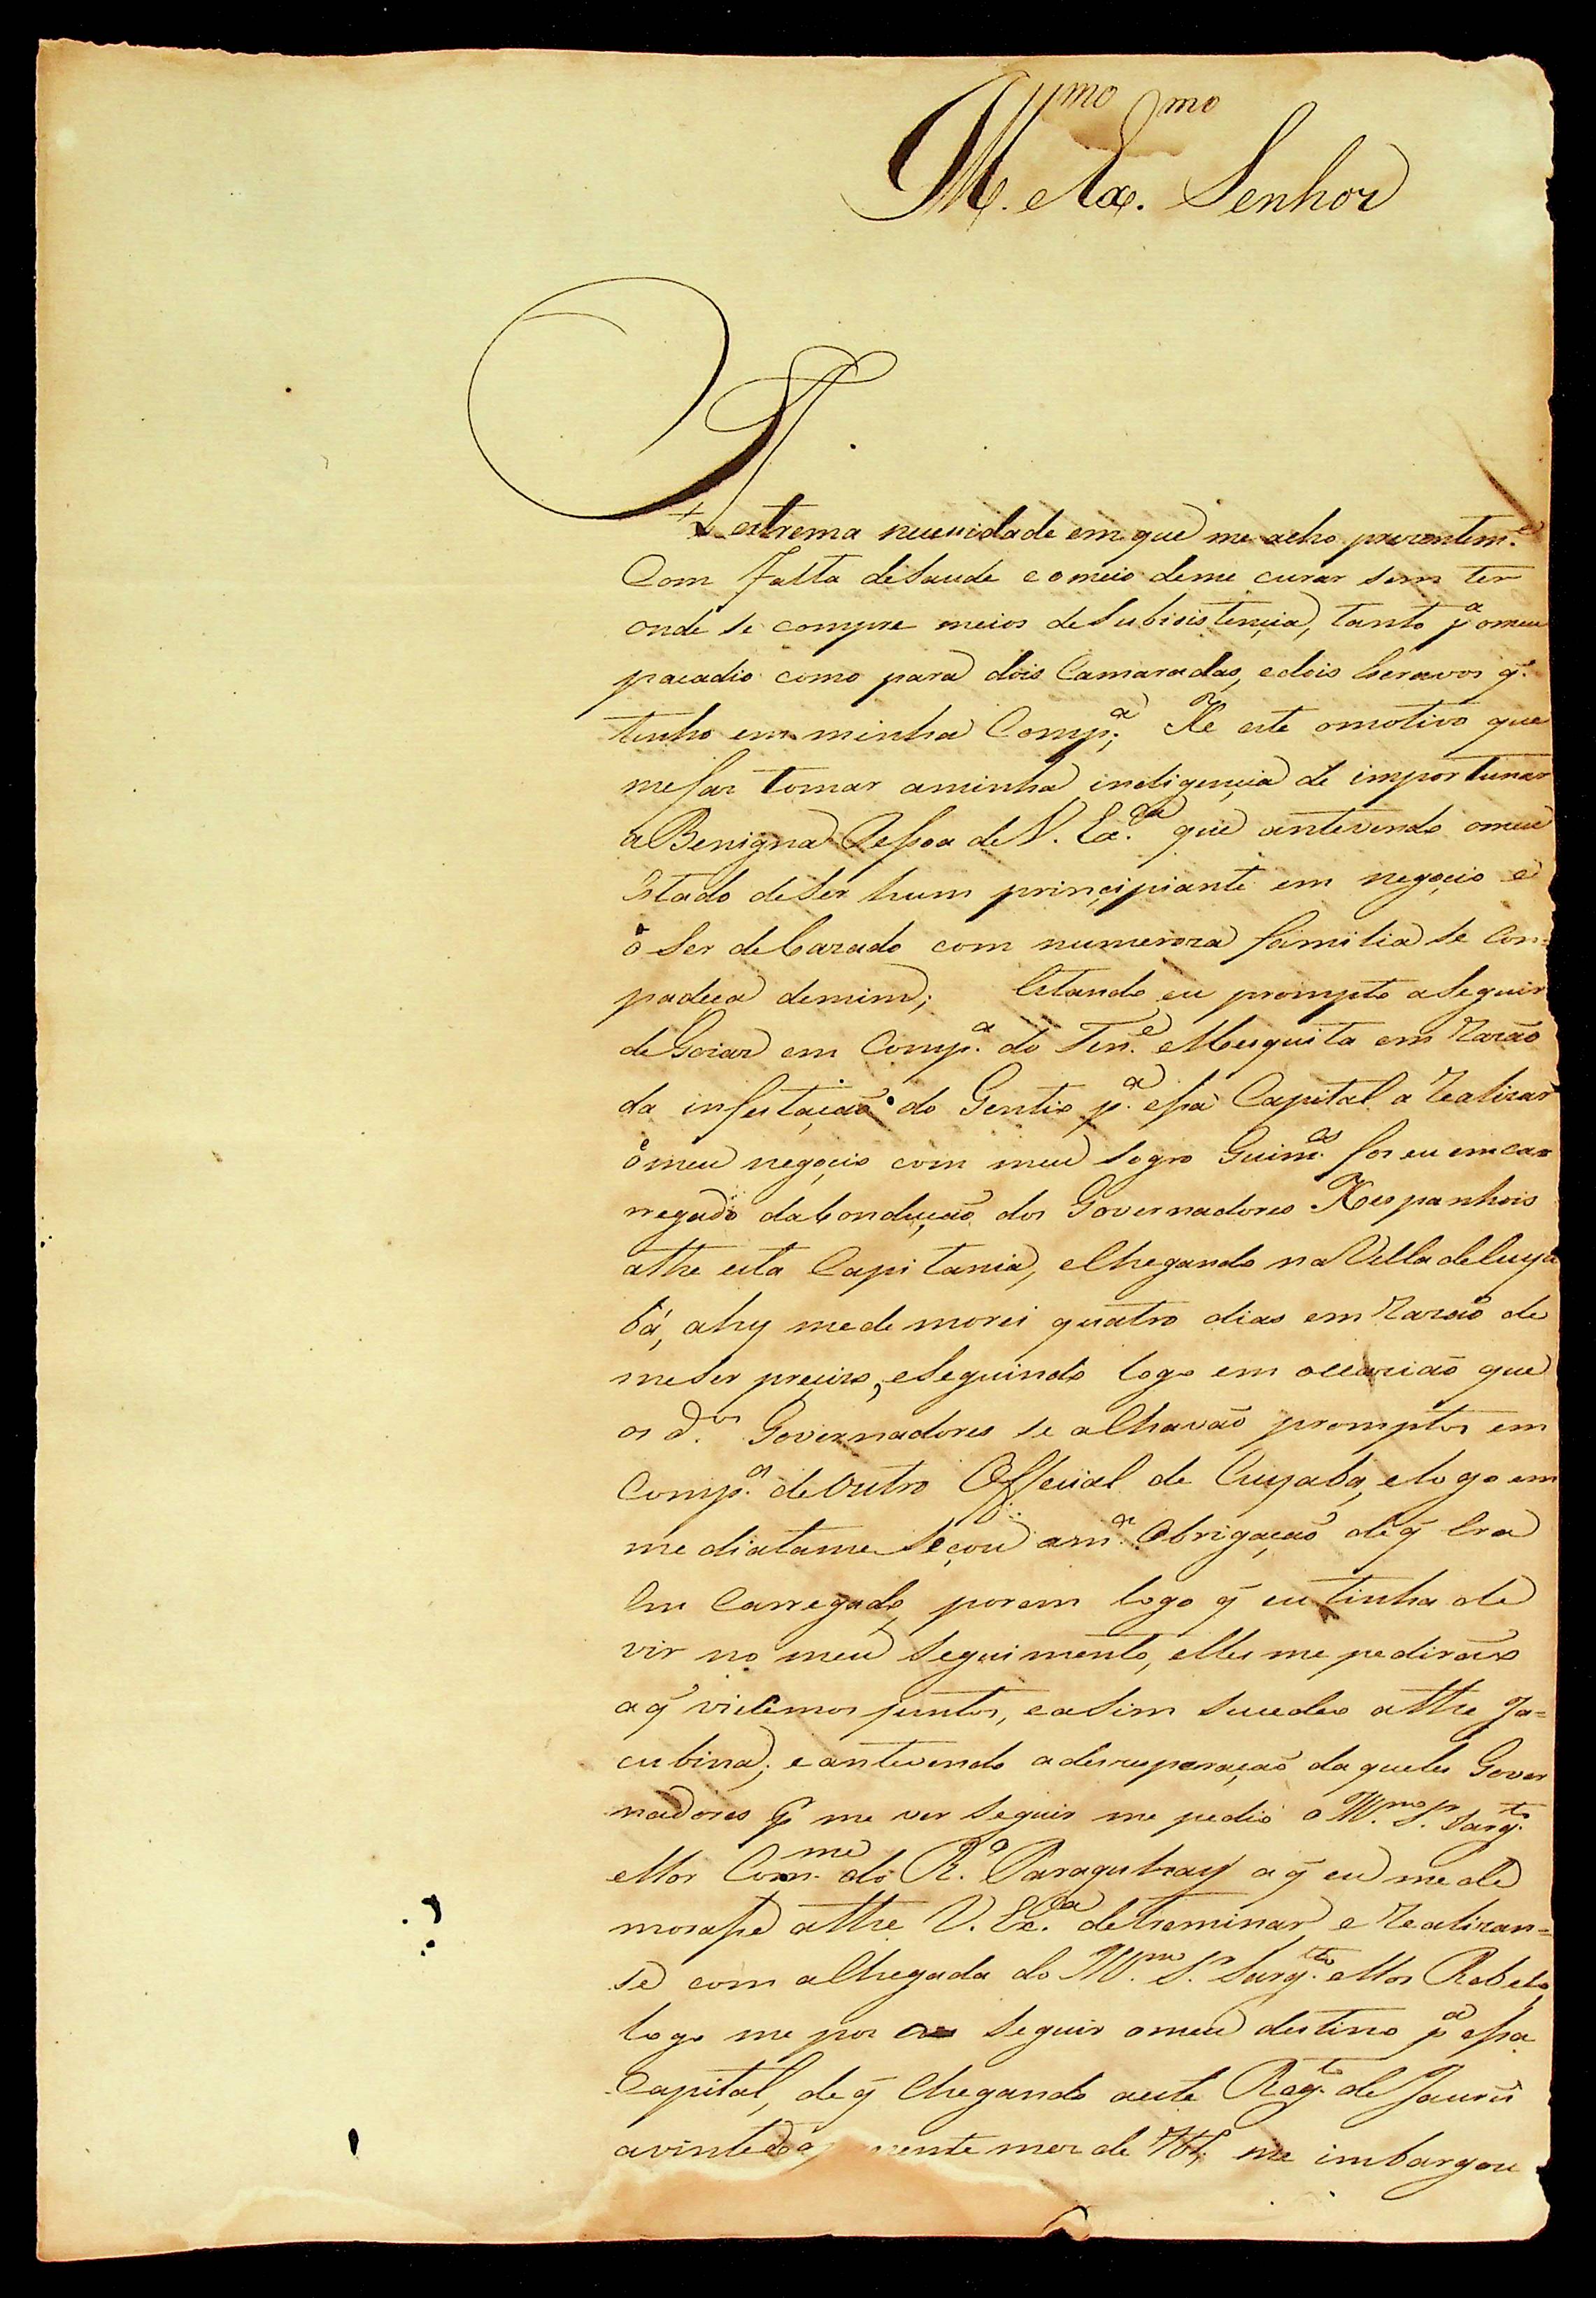 Ill.mo e Ex.mo Senhor
A extrema necessidade em que me acho prezentem.e
Com falta de Saude e o meio de me curar sem ter
onde se compre meios de Subisistençia, tanto p.a o meu
paçadio como para dois Camaradas, e dois Escravos q.
tenho em minha Comp.a; He este o motivo que
me faz tomar a minha indigençia de importunar
a Benigna Pessoa de V. Ex.cia que antevendo o meu
Estado de Ser hum prinçipiante em negoçio e
o Ser de Cazado com numeroza familia se Con=
padeca de mim; Estando eu prompto a Seguir
de Goiaz em Comp.a do Ten.e Mesquita em Razão
da infestação do Gentio p.a essa Capital a Realizar
o meu negoçio com meu Sogro Guim.es foi eu emcar
regado da Condução dos Governadores Hespanhois
athe esta Capitania, e Chegando na Villa de Cuya
bá, ahy me demorei quatro dias em Razão de
me Ser preçizo, e Seguindo logo em occazião que
os d.os Governadores se achavão promptos em
Comp.a de Outro Official de Cuyaba, e logo em
mediatame Seçou a m.a Obrigação de q̃ Era
Em Carregado, porem logo q̃ eu tinha de
vir no meu Seguimento, elles me pedirão
a q̃ viecemos juntos, e a Sim Sucedeo athe Ja=
cubina; e antevendo a desesperação daqueles Gover
nadores p.r me ver Seguir me pedio o Ill.mo S.r Sarg.to
Mor Com.me do R.o Paraguhay a q̃ eu me de
morasse athe V. Ex.cia detreminar, e Realizan=
se com a Chegada do Ill.mo S.r Sarg.tto Mor Rebelo,
logo me pos a Seguir o meu destino p.a essa
Capital, de q̃ Chegando a este Reg.to de Jaurú
a vinte do mez de me imbargou